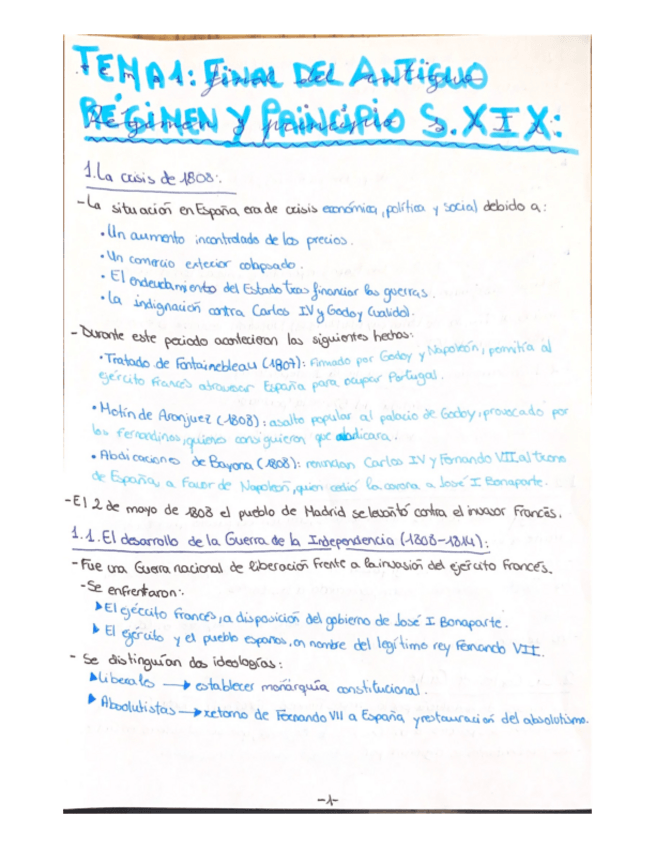 TEMA 1: FINAL DEL ANTIGUO
RÉGIMEN Y PRINCIPIO S.XIX:
1. La crisis de 1808:
- La situación en España era de crisis económica, política y social debido a:
• Un aumento incontrolado de los precios.
• Un comercio exterior colapsado.
• El endeudamiento del Estado tras financiar las guerras.
• La indignación contra Carlos IV y Godoy (valido).
- Durante este periodo acontecieron los siguientes hechos:
• Tratado de Fontainebleau (1807): Firmado por Godoy y Napoleón, permitía al
ejército francés atravesar España para ocupar Portugal.
• Motín de Aranjuez (1808): asalto popular al palacio de Godoy, provocado por
los fernandinos, quienes consiguieron que abdicara.
• Abdicaciones de Bayona (1808): renuncian Carlos IV y Fernando VII al trono
de España, a favor de Napoleón, quien cedió la corona a José I Bonaparte.
- El 2 de mayo de 1808 el pueblo de Madrid se levantó contra el invasor francés.
1.1. El desarrollo de la Guerra de la Independencia (1808-1814):
- Fue una Guerra nacional de liberación frente a la invasión del ejército francés.
- Se enfrentaron:
▶ El ejército francés, a disposición del gobierno de José I Bonaparte.
▶ El ejército y el pueblo español, en nombre del legítimo rey Fernando VII.
- Se distinguían dos ideologías:
▶ Liberales → establecer monarquía constitucional.
▶ Absolutistas → retorno de Fernando VII a España y restauración del absolutismo.
-1-